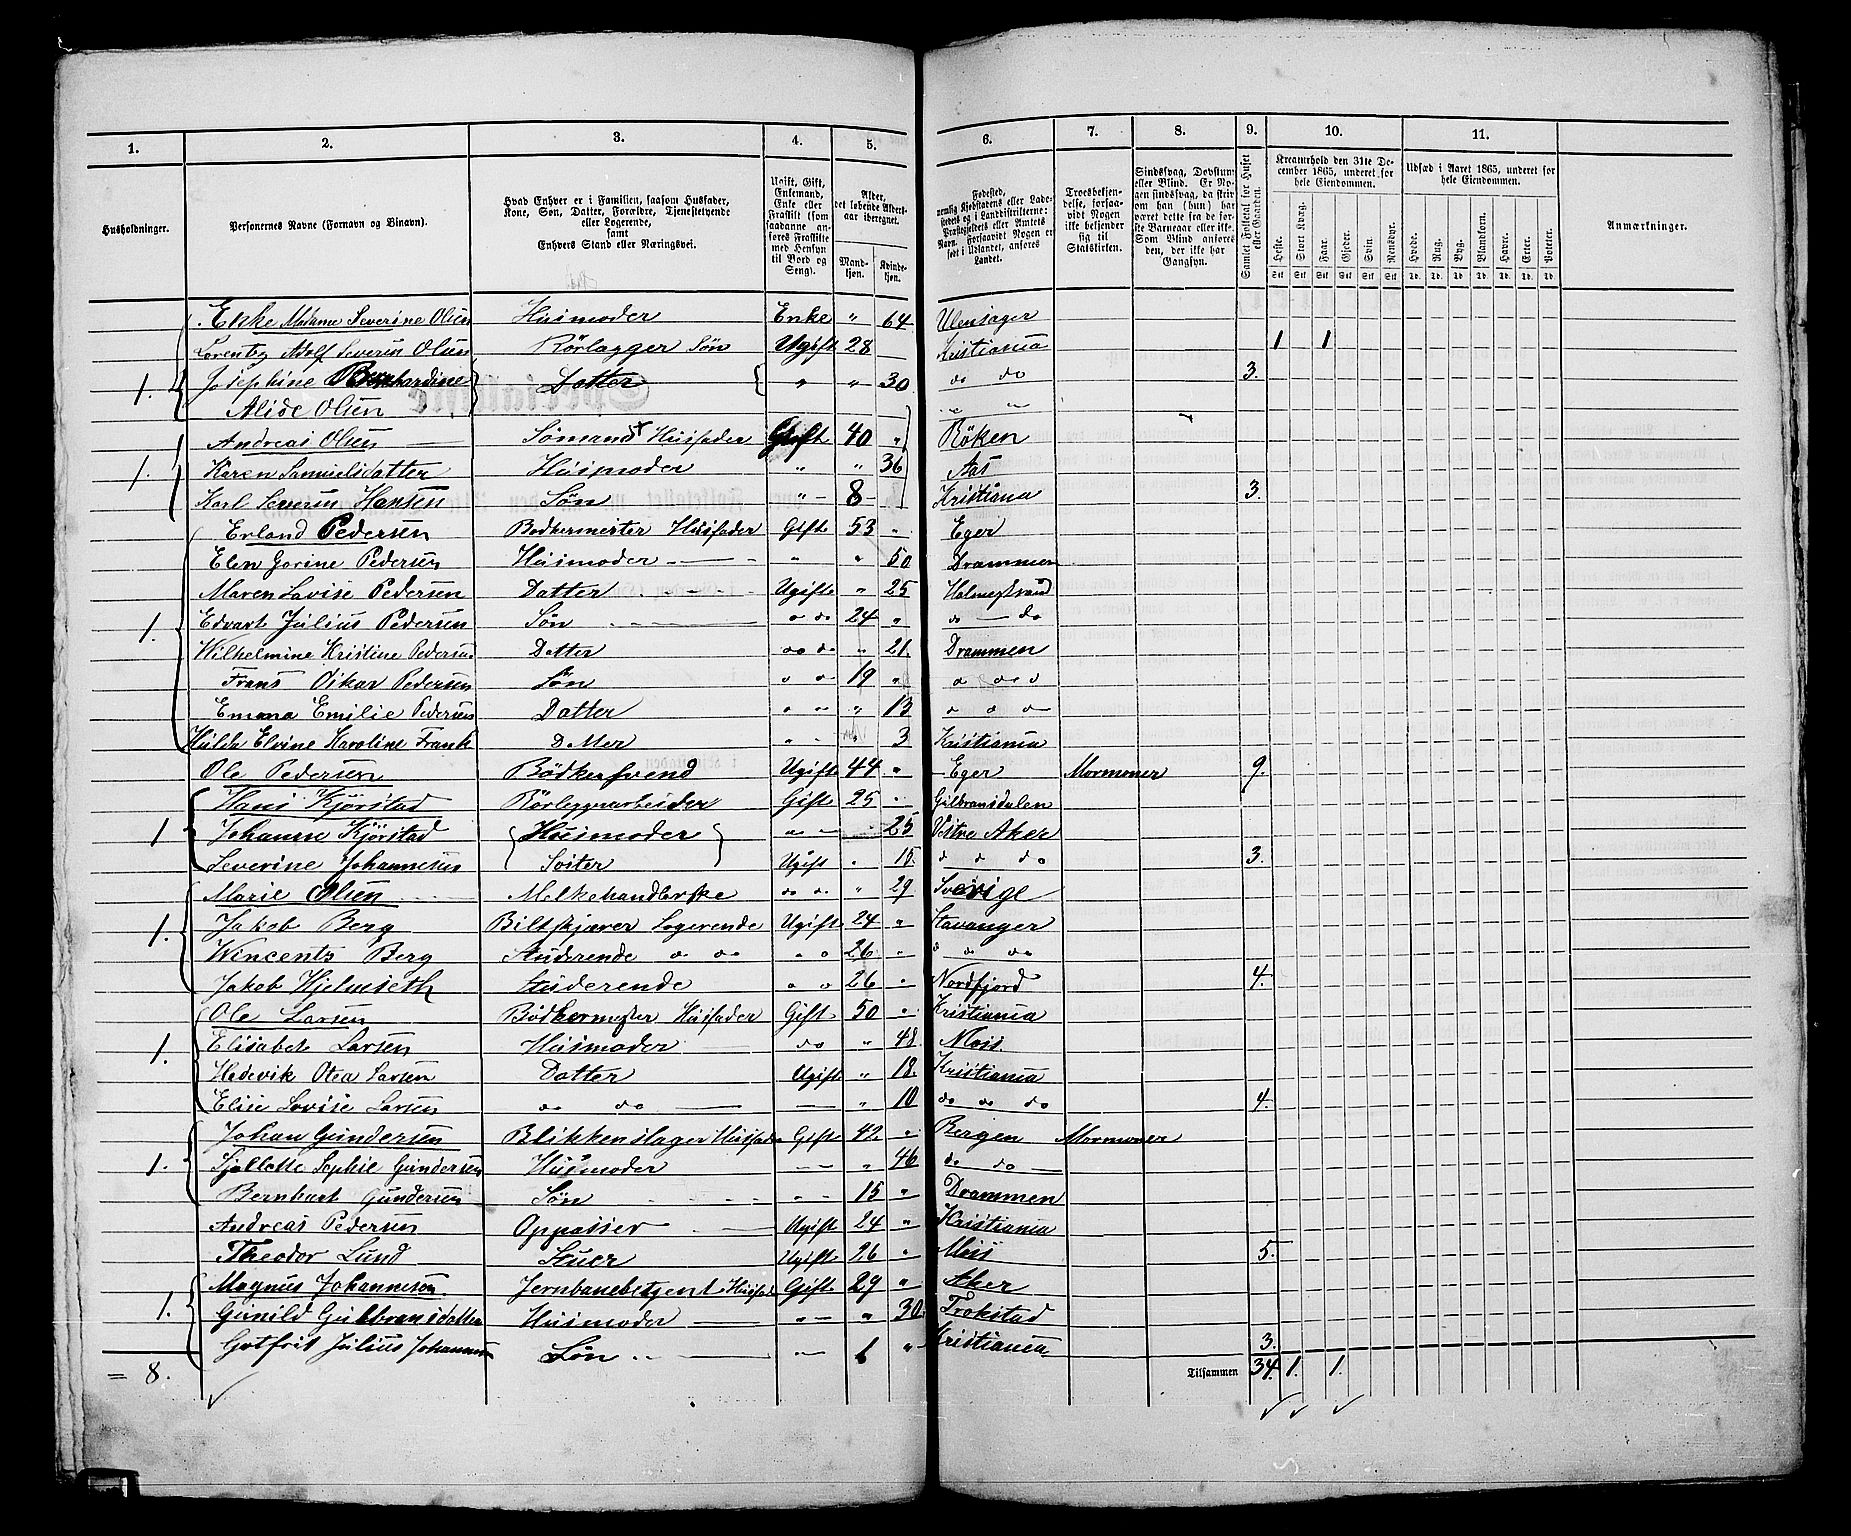 1. 2. 3. 4. 5. 6. 7. 8. 9. 10. 11.
Husholdninger.
Personernes Navne (Fornavn og Binavn).
Hvad Enhver er i Familien, saasom Husfader,
Kone, Søn, Datter, Forældre, Tjenestetyende
eller Logerende,
samt
Enhvers Stand eller Næringsvei.
Ugift, Gift,
Enkemand,
Enke eller
Fraskilt (som
saadanne an-
føres Fraskilte
med Hensyn
til Bord og
Seng).
Alder,
det løbende Alders-
aar iberegnet.
Mand-
kjøn.
Kvinde-
kjøn.
Fødested,
nemlig Kjøbstadens eller Lade-
stedets og i Landdistrikterne:
Præstegjeldets eller Amtets
Navn. Forsaavidt Nogen er
født i Udlandet, anføres
Landet.
Troesbekjen-
delse, forsaa-
vidt Nogen
ikke bekjender
sig til
Statskirken.
Sindssvag, Døvstum
eller Blind. Er No-
gen sindssvag, da skri-
ves han (hun) har
været dette fra de før-
ste Barneaar eller ikke.
Som Blind anføres
den, der ikke har
Gangsyn.
Samlet Folketal for Huset
eller Gaarden.
Kreaturhold den 31te De-
cember 1865, underet for
hele Eiendommen.
Heste. Stort Kvæg. Faar. Gjeder. Svin. Rensdyr.
Udsæd i Aaret 1865, underet for
hele Eiendommen.
Hvede. Rug. Byg. Blandkorn. Havre. Erter. Poteter.
Anmærkninger.
Enke Madame Severine Olsen Husmoder Enke " 64 Ulensager
Lorentz Adolf Severin Olsen Rörlægger Søn Ugift 28 Kristiania 1 1
1. Josephine Bernhardine Datter " " 30 do do 3.
Alide Olsen " "
Andreas Olsen Sømand Husfader Gift 40 " Röken
1. Karen Samuelsdatter Husmoder " " 36 Aas
Karl Severin Hansen Søn " 8 Kristiania 3.
Erland Pedersen Bødkermester Husfader Gift 53 " Eger
Elen Gorine Pedersen Husmoder " " 50 Drammen
Maren Lovise Pedersen Datter Ugift " 25 Holmestrand
1. Edvart Julius Pedersen Søn do 24 " do do
Wilhelmine Kristine Pedersen Datter do do " 21. Drammen
Frans Oskar Pedersen Søn 19 "
Emma Emilie Pedersen Datter " " " 13
Hulda Elvine Karoline Frank Datter " " 3 Kristiania
Ole Pedersen Bödkersvend Ugift 44 " Eger Mormoner 9.
Hans Kjörstad Rörleggerarbeider Gift 25 " Gulbransdalen
1 Johanne Kjörstad Husmoder " 25 Vestre Aker
Severine Johannesen Søster Ugift " 15. do 3.
Marie Olsen Melkehandlerske do do " 29 Sverige
1. Jakob Berg Biltskjærer Logerende Ugift 24 " Stavanger
Wincents Berg Studerende do do 26 " do
Jakob Hjelmseth Studerende 26 " Nordfjord 4.
Ole Larsen Bødkermester Husfader Gift 50 " Kristiania
1. Elisabet Larsen Husmoder do " 48 Moss
Hedevik Otea Larsen Datter Ugift " 18. Kristiania
Elise Lovise Larsen do do " 10 do do do 4.
Johan Gundersen Blikkenslager Husfader Gift 42 " Bergen Mormoner
1. Sophie Gundersen Husmoder " " 46 do do
Bernhart Gundersen Søn " " 15 " Drammen
Andreas Pedersen Oppasser Ugift 24 " Kristiania
Theodor Lund Stuer Ugift 26 " Moss 5.
Magnus Johannesen Jernbanebetjent Husfader Gift 29 " Aker
1. Gunild Gulbransdatter Husmoder " " 30. Trøkstad
Gotfrit Julius Johannesen Søn " 1 " Kristiania 3.
= 8. Tilsammen 34. 1. 1.